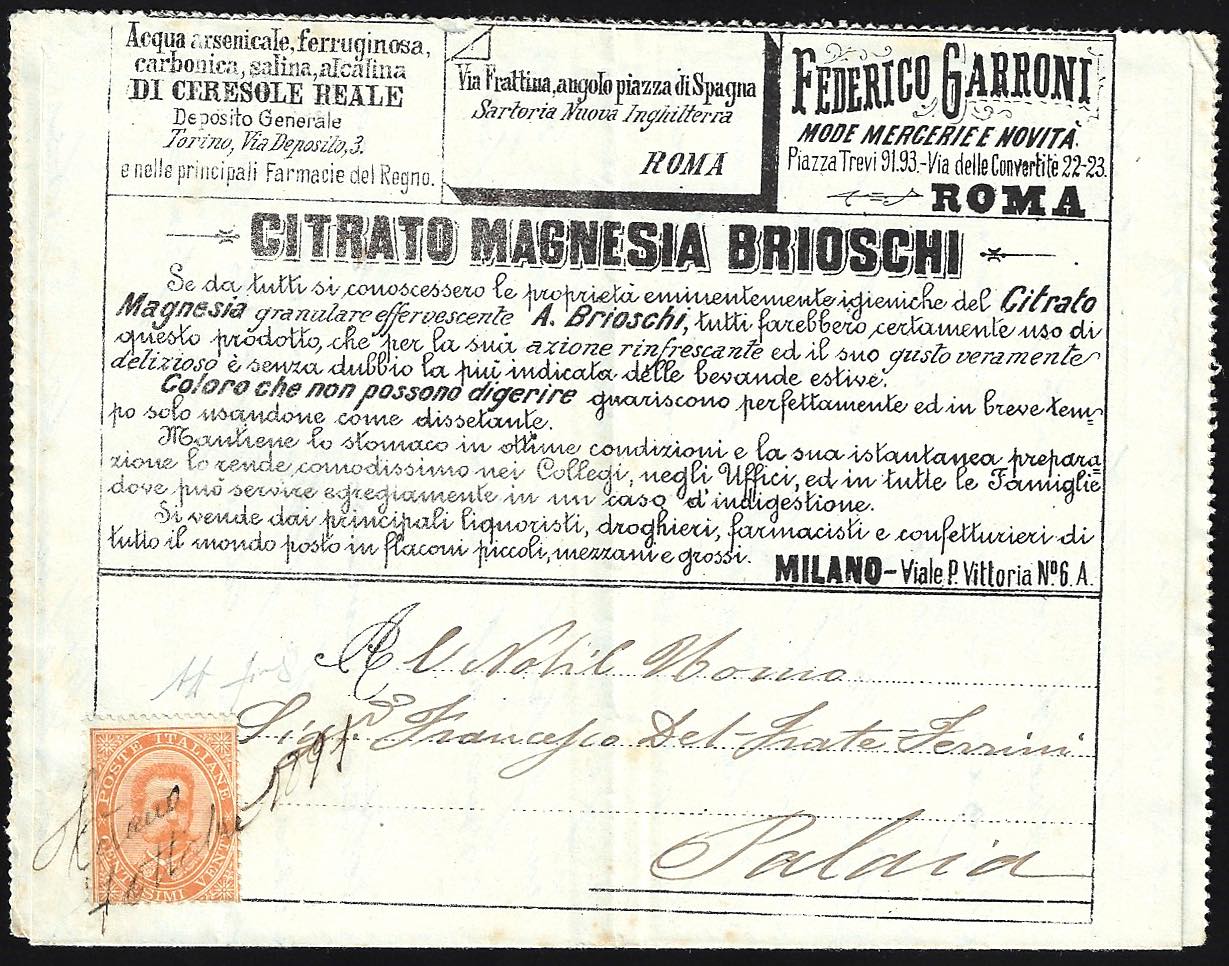 Acqua arsenicale, ferruginosa,
carbonica, salina, alcalina
DI CERESOLE REALE
Deposito Generale
Torino, Via Deposito, 3.
e nelle principali Farmacie del Regno.
Via Frattina, angolo piazza di Spagna
Sartoria Nuova Inghilterra
ROMA
FEDERICO GARRONI
MODE MERCERIE E NOVITÀ
Piazza Trevi 91.93.-Via delle Convertite 22-23.
ROMA
CITRATO MAGNESIA BRIOSCHI
Se da tutti si conoscessero le proprietà eminentemente igieniche del Citrato
Magnesia granulare effervescente A. Brioschi, tutti farebbero certamente uso di
questo prodotto, che per la sua azione rinfrescante ed il suo gusto veramente
delizioso è senza dubbio la più indicata delle bevande estive.
Coloro che non possono digerire guariscono perfettamente ed in breve tem=
po solo usandone come dissetante.
Mantiene lo stomaco in ottime condizioni e la sua istantanea prepara=
zione lo rende comodissimo nei Collegi, negli Uffici, ed in tutte le Famiglie
dove può servire egregiamente in un caso d'indigestione.
Si vende dai principali liquoristi, droghieri, farmacisti e confetturieri di
tutto il mondo posto in flaconi piccoli, mezzani e grossi.
MILANO - Viale P. Vittoria Nº 6. A.
Al Nobil Uomo
Sigr Francesco Del-Frate Ferrini
Palaia
POSTE ITALIANE
CENTESIMI VENTI